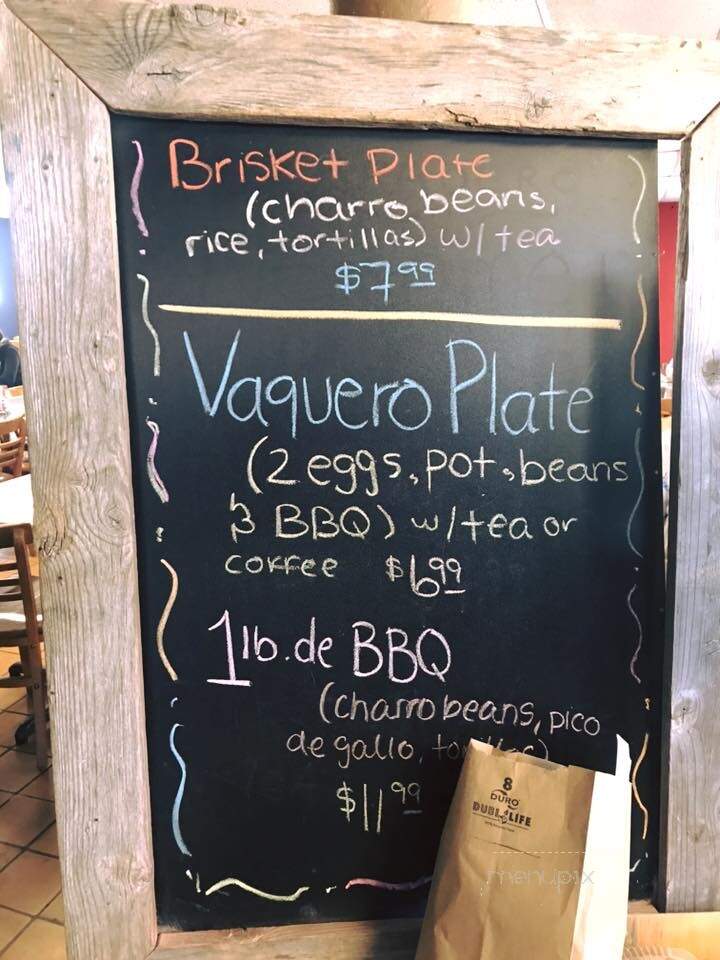 Brisket Plate
(charro beans,
rice, tortillas) w/ tea
$7.99
Vaquero Plate
(2 eggs, pot, beans
& BBQ) w/ tea or
coffee $6.99
1 lb. de BBQ
(charro beans, pico
de gallo,
$11.99
8
DURO
DUBL LIFE
menupix